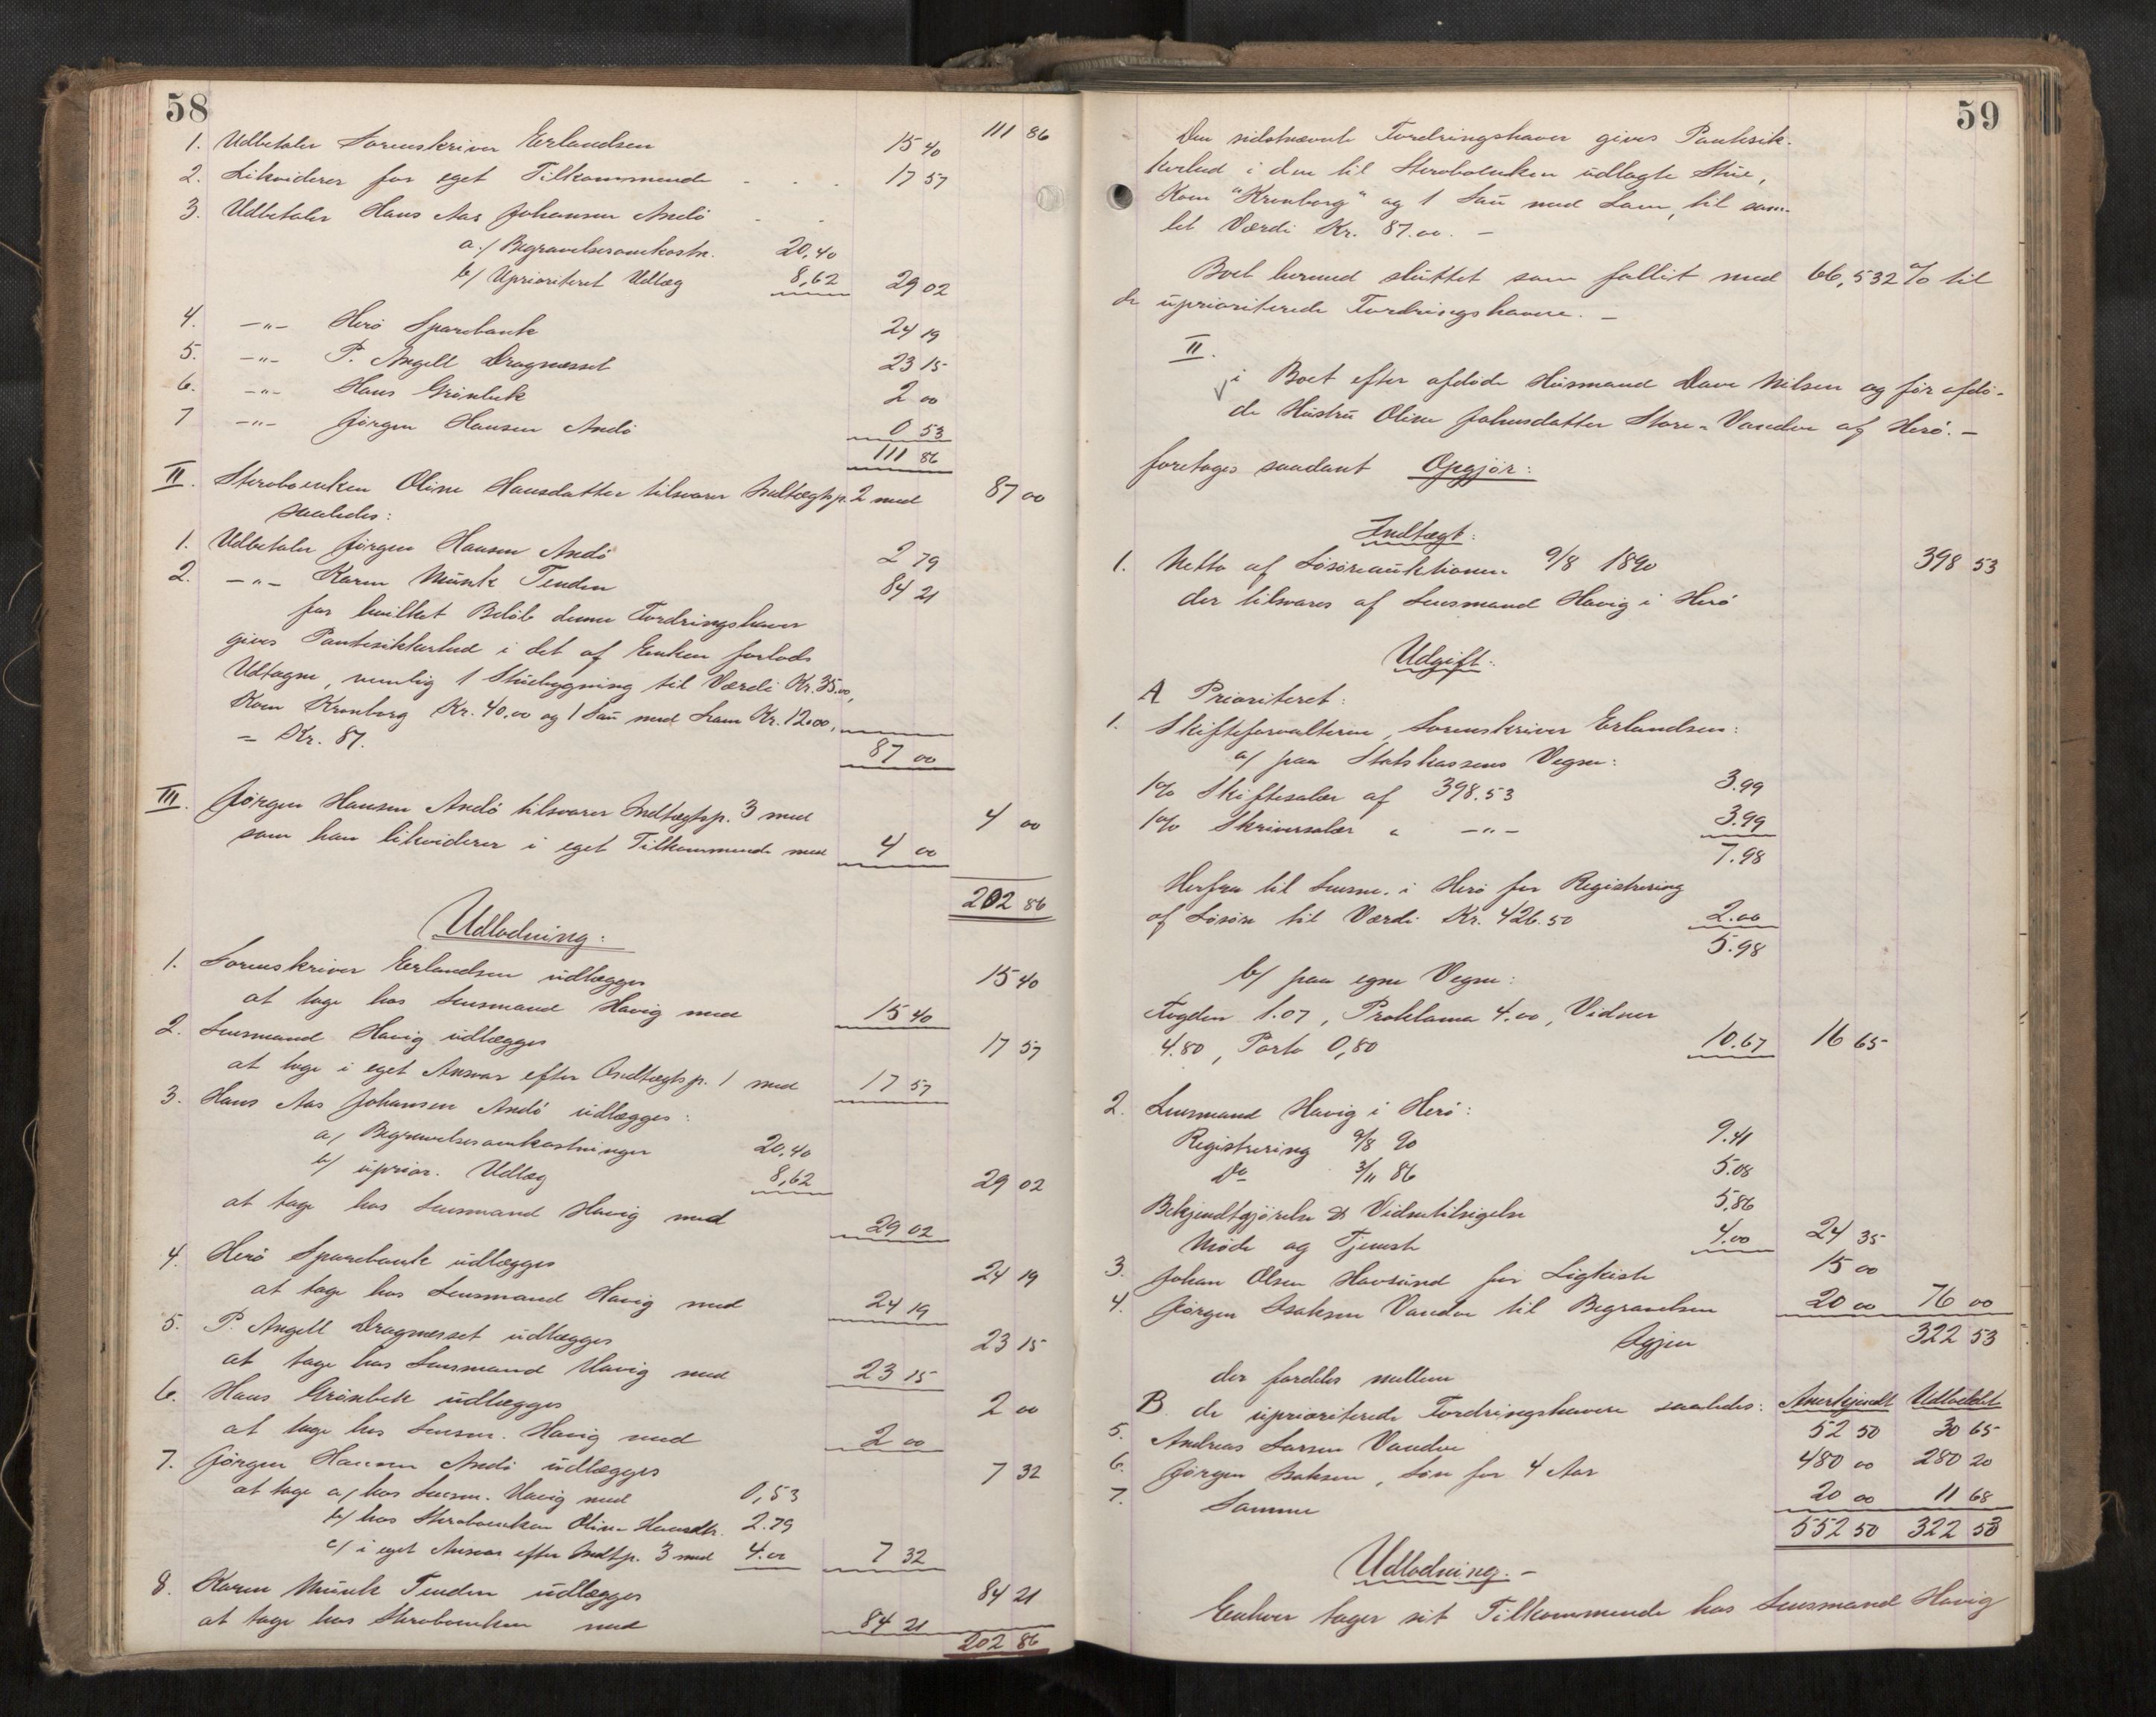 58
111 86
1. Udbetaler Sorenskriver Erlandsen 15 40
2. Likviderer for eget Tilkommende - - - 17 57
3. Udbetaler Hans Aas Johansen Andö - -
a./ Begravelsesomkostn. 20,40
b/ Uprioriteret Udlæg 8,62 29 02
4. -"- Herö Sparebank 24 19
5. -"- P. Angell Dragnesset 23 15
6. -"- Hans Grönbek 2 00
7 -"- Jörgen Hansen Andö 0 53
111 86
II. Sterboenken Oline Hansdatter tilsvarer Indtægtsp. 2 med 87 00
saaledes:
1. Udbetaler Jörgen Hansen Andö 2 79
2. -"- Karen Münk Tenden 84 21
for hvilket Belöb denne Fordringshaver
gives Pantesikkerhed i det af Enken forlods
Udtagne, nemlig 1 Stuebygning til Værdi Kr. 35.00,
Koen Kronborg Kr. 40.00 og 1 Sau med Lam Kr. 12.00,
= Kr. 87. 87 00
III. Jörgen Hansen Andö tilsvarer Indtægtsp. 3 med 4 00
som han likviderer i eget Tilkommende med 4 00
202 86
Udlodning:
1. Sorenskriver Erlandsen udlægges 15 40
at tage hos Lensmand Havig med 15 40
2. Lensmand Havig udlægges 17 57
at tage i eget Ansvar efter Indtægtsp. 1 med 17 57
3. Hans Aas Johansen Andö udlægges:
a/ Begravelsesomkostninger 20,40
b/ uprior. Udlæg 8,62 29 02
at tage hos Lensmand Havig med 29 02
4. Herö Sparebank udlægges 24 19
at tage hos Lensmand Havig med 24 19
5. P. Angell Dragnesset udlægges 23 15
at tage hos Lensmand Havig med 23 15
6. Hans Grönbek udlægges 2 00
at tage hos Lensm. Havig med 2 00
7. Jörgen Hansen Andö udlægges 7 32
at tage a/ hos Lensm. Havig med 0,53
b/ hos Sterboenken Oline Hansdtr. 2.79
c/ i eget Ansvar efter Indtp. 3 med 4.00 7 32
8. Karen Münk Tenden udlægges 84 21
at tage hos Sterboenken med 84 21
202 86
59
Den sidstnævnte Fordringshaver gives Pantesik-
kerhed i den til Sterboenken udlagte Stue,
Koen "Kronborg" og 1 Sau med Lam, til sam-
let Værdi Kr. 87.00. -
Boet hermed sluttet som fallit med 66,532% til
de uprioriterede Fordringshavere. -
II.
i Boet efter afdöde Husmand Dave Nilsen og för afdö-
de Hustru Oline Johnsdatter Store-Vandve af Herö. -
foretoges saadant Opgjör:
Indtægt:
1. Netto af Lösöreauktionen 9/8 1890 398 53
der tilsvares af Lensmand Havig i Herö
Udgift:
A Prioriteret:
1. Skifteforvalteren, Sorenskriver Erlandsen:
a/ paa Statskassens Vegne:
1% Skiftesalær af 398.53 3.99
1% Skriversalær " -"- 3.99
7.98
Herfra til Lensm. i Herö for Registrering
af Lösöre til Værdi Kr. 426.50 2.00
5.98
b/ paa egne Vegne:
Fogden 1.07, Proklama 4.00, Vidner
4.80, Porto 0,80 10.67 16 65
2. Lensmand Havig i Herö:
Registrering 9/8 90 9.41
Do 3/11 86 5.08
Bekjendtgjörelse & Vidnetilsigelse 5,86
Möde og Tjeneste 4.00 24 35
3. Johan Olsen Havsund for Ligkiste 15 00
4. Jörgen Isaksen Vandve til Begravelsen 20 00 76 00
Igjen 322 53
der fordeles mellem
B. de uprioriterede Fordringshavere saaledes: Anerkjendt Udloddet
5. Andreas Larsen Vandve 52 50 30 65
6. Jörgen Isaksen, Lön for 4 Aar 480 00 280 20
7. Samme 20 00 11 68
552 50 322 53
Udlodning. -
Enhver tager sit Tilkommende hos Lensmand Havig